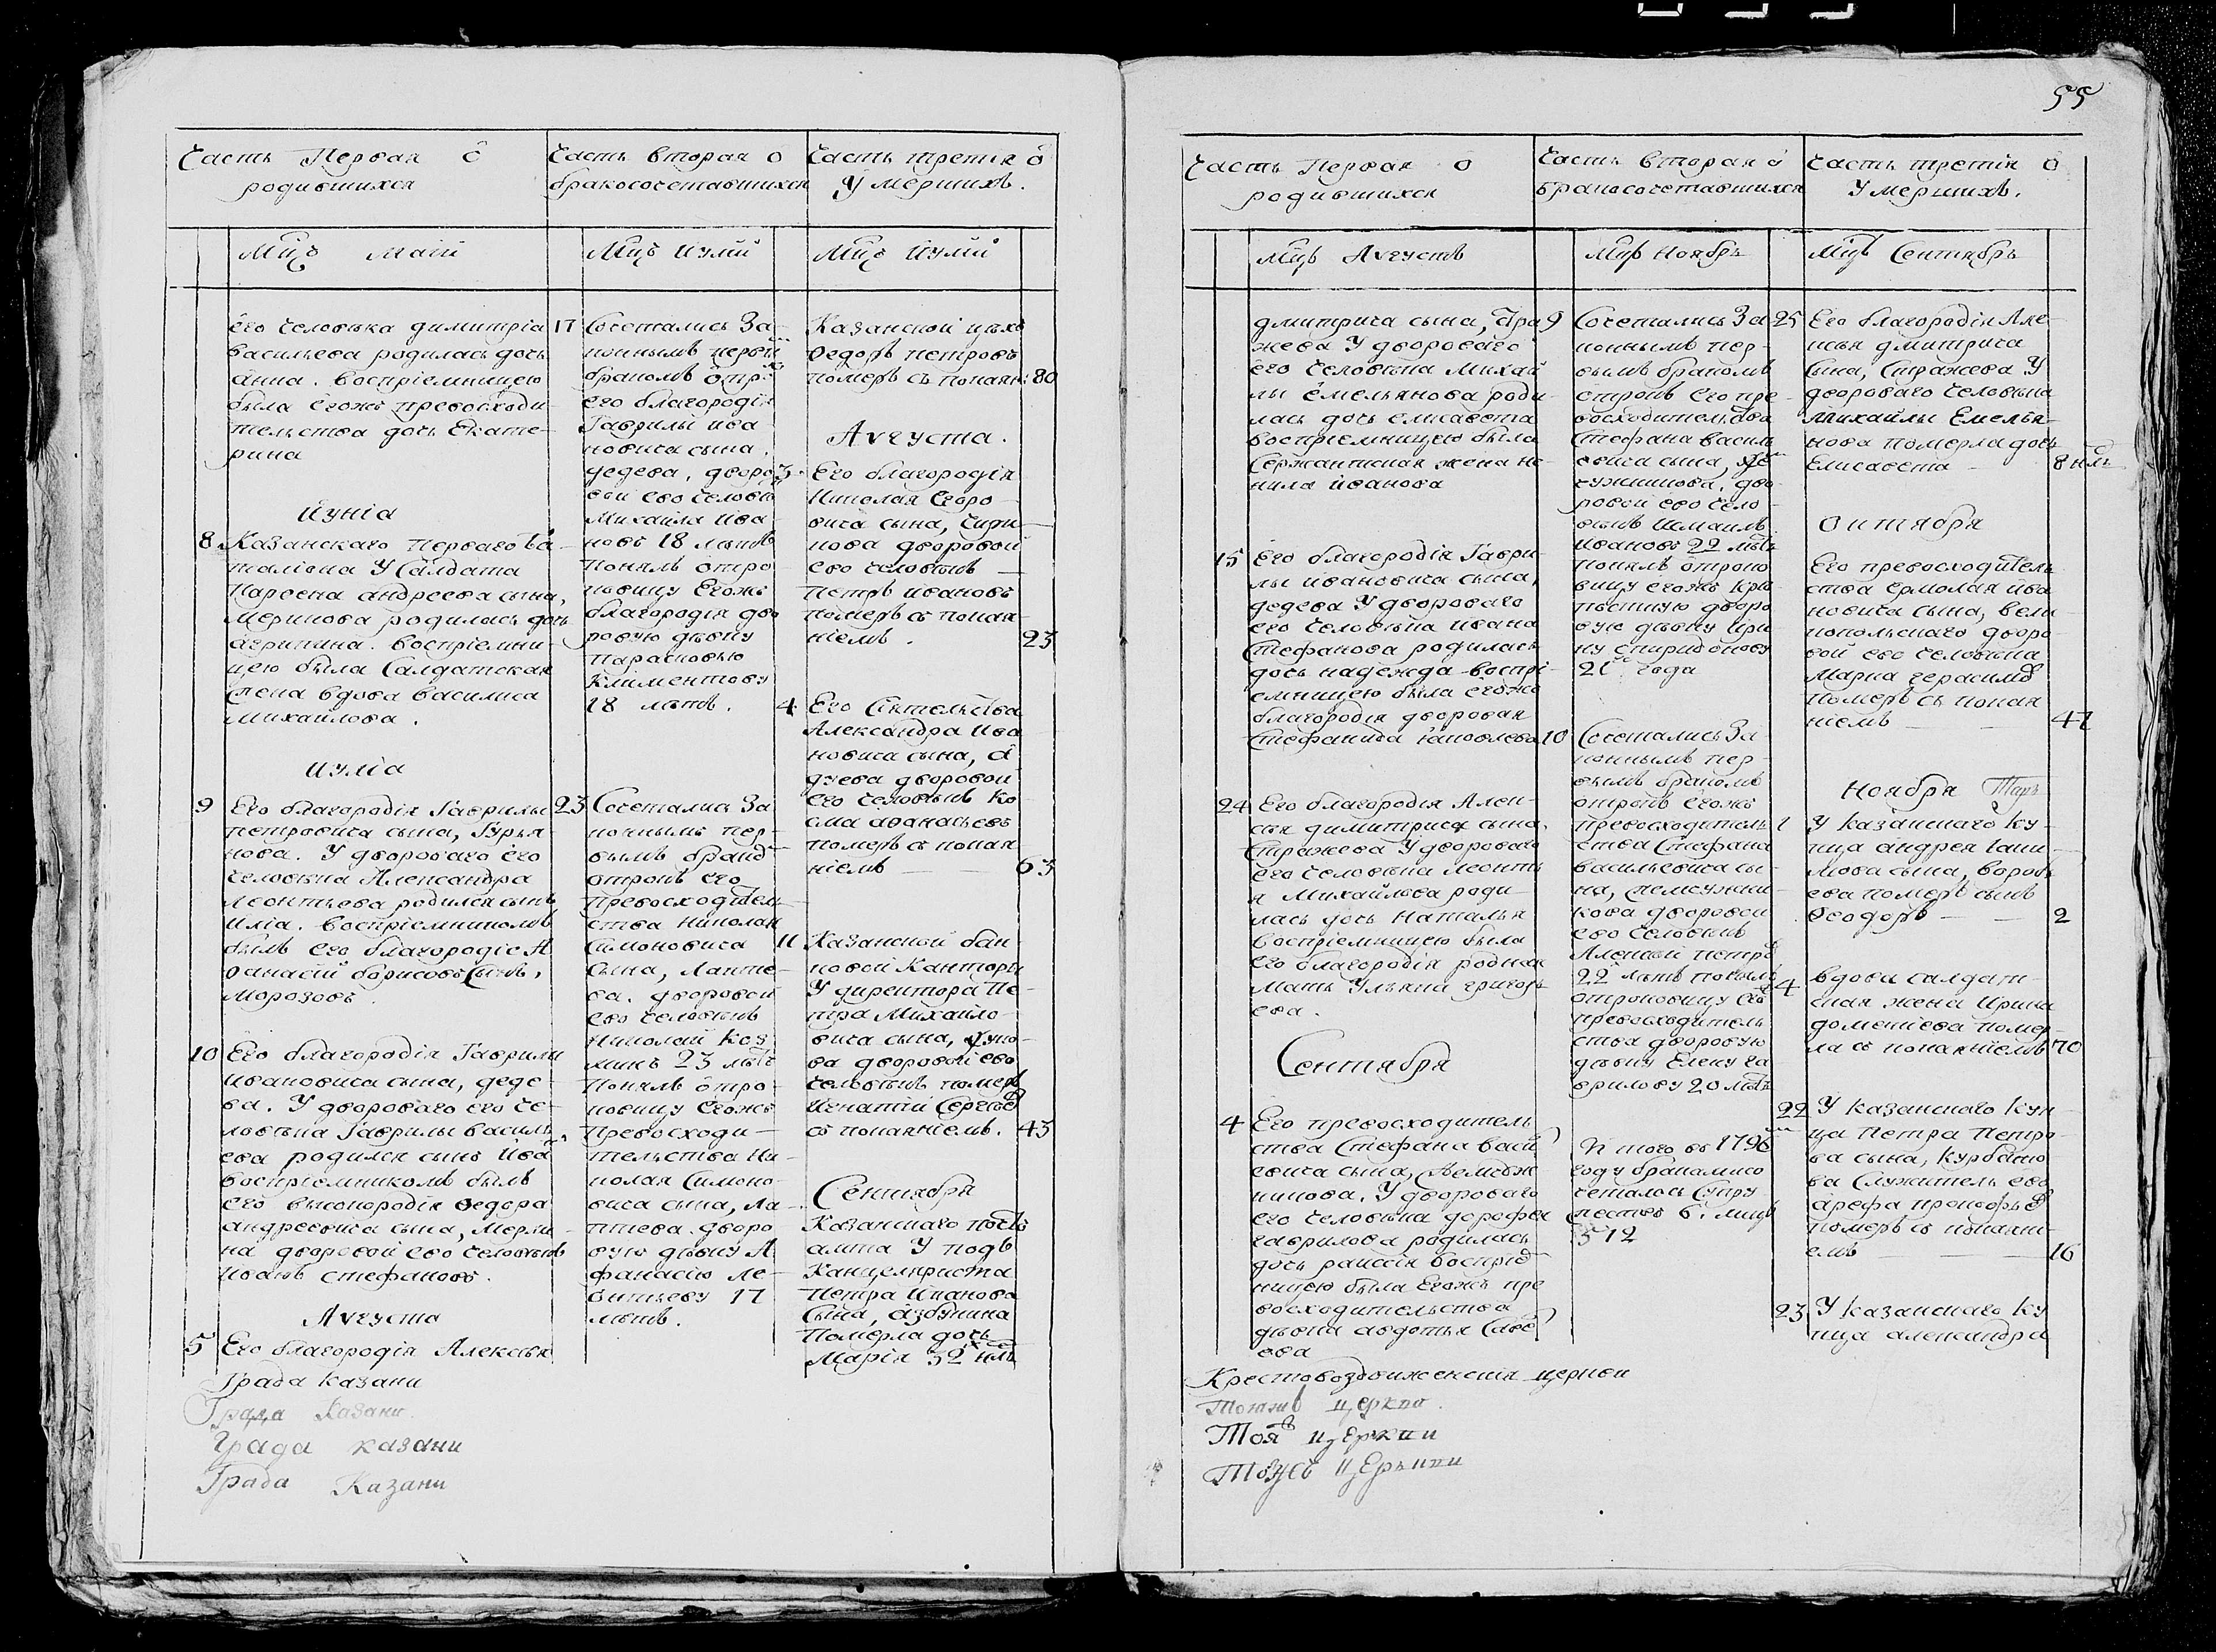 55
Часть Первая ô
родившихся
Мцъ маiй
его человѣка димитрiа
васильева родилась дочь
анна. воспрiемницею
была егожъ превосходи-
тельства дочь Екате-
рина
Iунiа
8 Казанскаго Перваго ба-
талiона У Салдата
Парѳена андреева сына,
меринова родилась дочь
агрипина. воспрiемни-
цею была Салдатская
жена вдова василиса
михаилова.
Иулiа
9 Его благородiя Гаврилы
петровича сына, Гурья-
нова. У двороваго его
человѣка Александра
леонтьева родился сынъ
Илiа. воспрiемникомъ
былъ его благородiе А
ѳанасiй борисовъ Сынъ,
морозовъ.
10 Его благородiя Гаврилы
ивановича сына, деде-
ва. У двороваго его че-
ловѣка Гаврилы василь-
ева родился сынъ Ива
воспрiемникомъ былъ
его высокородiя Ѳедора
андреевича сына, мерли-
на дворовой его человѣкъ
Иванъ стефановъ.
Августа
5 Его благородiя Алексѣя
Часть вторая о
бракосочетавшихся
Мцъ Иулiй
17 Сочетались За-
коннымъ первы
бракомъ отро
его благородiя
Гаврилы ива
новича сына,
дедева, дворо
вой его человѣ
Михаила Ива
новъ 18 лѣтъ
Понялъ отро
ковицу Егожъ
благородiя дво
ровую дѣвку
Парасковью
Климентову
18 лѣтъ.
23 Сочетались За
коннымъ пер-
вымъ брако
отрокъ его
превосходитель
ства Николая
Симоновича
Сына, Лапте-
ва. дворовой
его человѣкъ
Николай Коз
минъ 23 лѣтъ
Понялъ отро-
ковицу Егожъ
Превосходи-
тельства Ни-
колая Симоно-
вича сына, ла-
птева. дворо
вую дѣвку А
фанасiю Ле-
онтьеву 17
лѣтъ.
Часть третiя ô
Умершихъ.
Мцъ Иулiй
Казанской цѣхо
Ѳедоръ петровъ
померъ съ покаян: 80
Августа.
3 Его благородiя
Николая Егоро-
вича сына, Чири-
кова дворовой
его человѣкъ
Петръ ивановъ
Померъ съ покая-
нiемъ. 23
4 Его Сiятельства
Александра Ива
новича сына, а
дуева дворовой
его человѣкъ Ко
сма аѳанасьевъ
Померъ съ покая
нiемъ 63
11 Казанской бан-
ковой Канторы
У директора Пе-
тра Михайло-
вича сына,
дворовой его
человѣкъ померъ
Игнатiй Сергѣе
съ покаянiемъ. 43
Сентября
Казанскаго почт
амта У подъ
Канцеляриста
Петра Иванова
Сына, азбукина
Померла дочь
Марiя 32 нлъ
Града казани
Града Казани
Града казани
Града Казани
Часть Первая О
родившихся
Мцъ Августъ
дмитрича сына, Стра
жева У двороваго
его человѣка Михай
лы емельянова роди-
лась дочь елисавета
воспрiемницею была
Сержантиская жена не-
нила Иванова
15 Его благородiя Гаври-
лы ивановича сына,
дедева У двороваго
его человѣка ивана
Стефанова родилась
дочь надежда воспрi-
емницею была егожъ
благородiя дворовая
Стефанида яковлева
24 Его благородiя Алек-
сѣя димитрича сына,
Стражева У двороваго
его человѣка леонть
я Михайлова роди-
лась дочь Наталья
воспрiемницею была
его благородiя родная
мать Ульяна григорь
ева.
Сентября
4 Его превосходитель
ства Стефана васи
евича сына,
У двороваго
его человѣка дорофея
гаврилова родилась
дочь раисiя воспрiе
ницею была Егожъ пре
восходительства
дѣвка авдотья Саве
ева
Часть вторая о
бракосочетавшихся
Мцъ Ноябрь
9 Сочетались За
коннымъ пер-
вымъ бракомъ
отрокъ его пре-
восходительства
Стефана василь
евича сына,
дво
ровой его чело
вѣкъ Измаилъ
Ивановъ 22 лѣтъ
понялъ отроко
вицу егожъ крѣ
постную дворо
вую дѣвку Ири
ну спиридонову
21 года
10 Сочетались За
коннымъ пер-
вымъ бракомъ
отрокъ егожъ
превосходитель
ства Стефана
васильевича сы-
на,
кова дворовой
его человѣкъ
Алексѣй петро
22 лѣтъ понялъ
отроковицу его
превосходитель
ства дворовую
дѣвку Елену га
врилову 20 лѣтъ
И того въ 1796
году бракомъ со
четалось Супру
жествъ 6.
Часть третiя О
Умершихъ.
Мцъ Сентябрь
25 Его благородiя Але-
ксѣя дмитрича
Сына, Стражева У
двороваго человѣка
михайлы Емелья-
нова померла дочь
Елисавета 8 нлъ
Октября
Его превосходитель
ства ермолая ива
новича сына, вели
копольскаго дворо-
вой его человѣка
Марка герасимо
Померъ съ покая
нiемъ 47
Ноября
1 У казанскаго ку-
пца андрея
мова сына, воробь
ева померъ сынъ
Ѳеодоръ 2
4 вдова салдат-
ская жена Ирина
доментiева помер-
ла съ покаянiемъ 70
22 У казанскаго куп-
ца Петра Петро-
ва сына, курбато
ва Служитель его
арефа прокофье
померъ съ покаянi-
емъ 16
23 У казанскаго ку
пца александра
Крестовоздвиженскiя церкви
Тояжъ церкви.
Тояжъ церкви
Тояжъ церкви